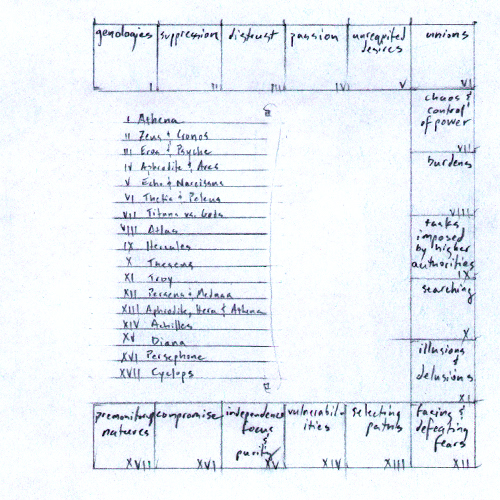 genologies
I
suppression
II
distrust
III
passion
IV
unrequited
desires
V
unions
VI
chaos &
control
of power
VII
burdens
VIII
tasks
imposed
by higher
authorities
IX
searching
X
illusions
&
delusions
XI
facing &
defeating
fears
XII
selecting
paths
XIII
vulnerabil-
ities
XIV
independence
focus
&
purity
XV
compromise
XVI
premonitory
natures
XVII
I Athena
II Zeus & Cronos
III Eros & Psyche
IV Aphrodite & Ares
V Echo & Narcissus
VI Thetis & Peleus
VII Titans vs. Gods
VIII Atlas
IX Hercules
X Theseus
XI Troy
XII Perseus & Medusa
XIII Aphrodite, Hera & Athena
XIV Achilles
XV Diana
XVI Persephone
XVII Cyclops